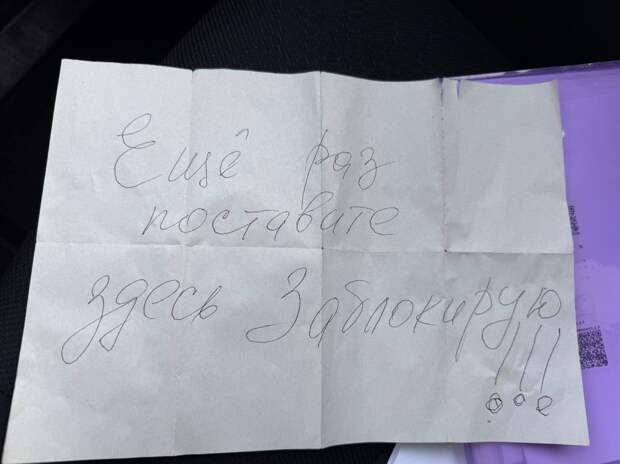 Ещё раз
поставите
здесь Заблокирую
!!!